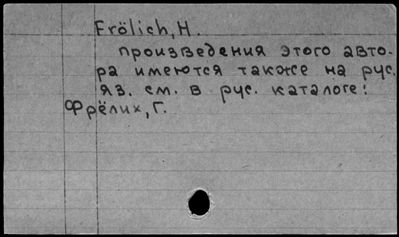 Frölich, H.
произведения этого авто-
ра имеются также на рус.
яз. см. в рус. каталоге:
Фрёлих, Г.